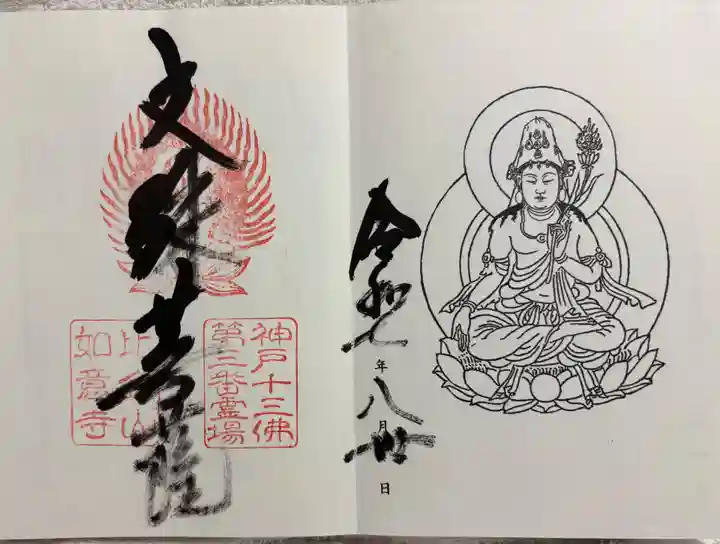 令和七年八月廿日
文殊菩薩
神戸十三佛
第三番霊場
比金山
如意寺